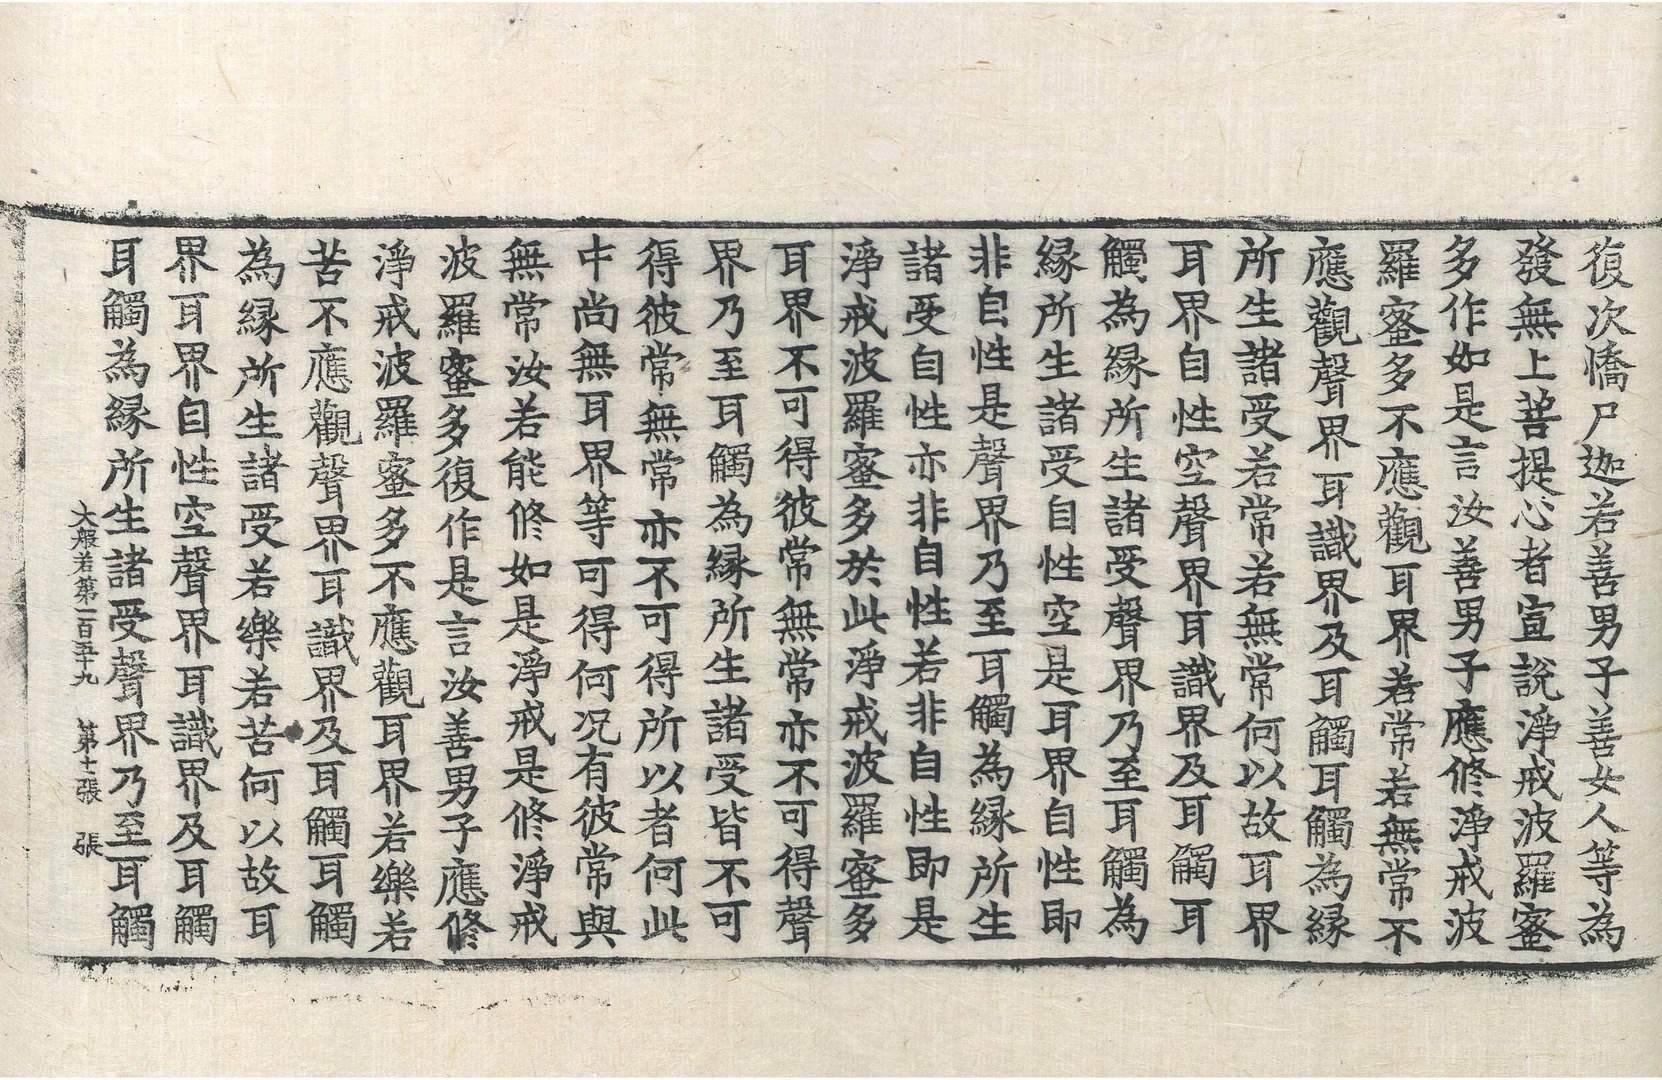 復次憍尸迦若善男子善女人等為
發無上菩提心者宣說淨戒波羅蜜
多作如是言汝善男子應修淨戒波
羅蜜多不應觀耳界若常若無常不
應觀聲界耳識界及耳觸耳觸為縁
所生諸受若常若無常何以故耳界
耳界自性空聲界耳識界及耳觸耳
觸為縁所生諸受聲界乃至耳觸為
縁所生諸受自性空是耳界自性即
非自性是聲界乃至耳觸為縁所生
諸受自性亦非自性若非自性即是
淨戒波羅蜜多於此淨戒波羅蜜多
耳界不可得彼常無常亦不可得聲
界乃至耳觸為縁所生諸受皆不可
得彼常無常亦不可得所以者何此
中尚無耳界等可得何况有彼常與
無常汝若能修如是淨戒是修淨戒
波羅蜜多復作是言汝善男子應修
淨戒波羅蜜多不應觀耳界若樂若
苦不應觀聲界耳識界及耳觸耳觸
為縁所生諸受若樂若苦何以故耳
界耳界自性空聲界耳識界及耳觸
耳觸為縁所生諸受聲界乃至耳觸
大般若第一百五十九 第十張 張